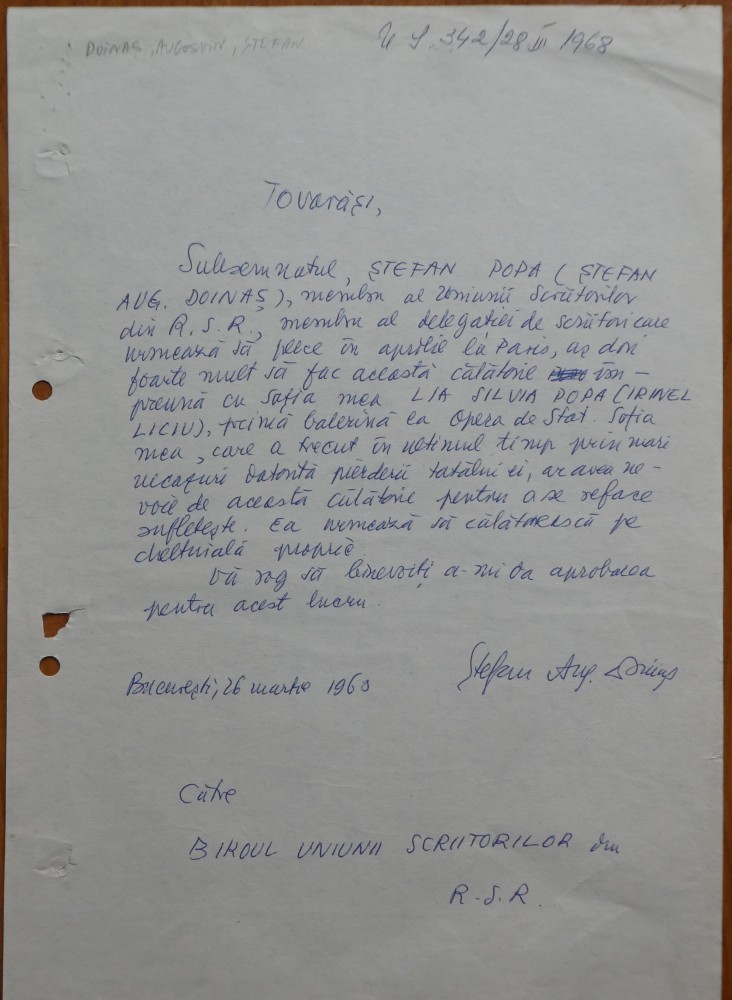 DOINAȘ, AUGUSTIN, ȘTEFAN
U S. 342/28 III 1968
Tovarăși,
Subsemnatul, ȘTEFAN POPA (ȘTEFAN
AUG. DOINAȘ), membru al Uniunii Scriitorilor
din R.S.R., membru al delegației de scriitori care
urmează să plece în aprilie la Paris, aș dori
foarte mult să fac această călătorie îm-
preună cu soția mea LIA SILVIA POPA (IRINEL
LICIU), primă balerină la Opera de Stat. Soția
mea, care a trecut în ultimul timp prin mari
necazuri datorită pierderii tatălui ei, ar avea ne-
voie de această călătorie pentru a se reface
sufletește. Ea urmează să călătorească pe
cheltuială proprie.
Vă rog să binevoiți a-mi da aprobarea
pentru acest lucru.
București, 26 martie 1968
Ștefan Aug. Doinaș
Către
BIROUL UNIUNII SCRIITORILOR din
R.S.R.